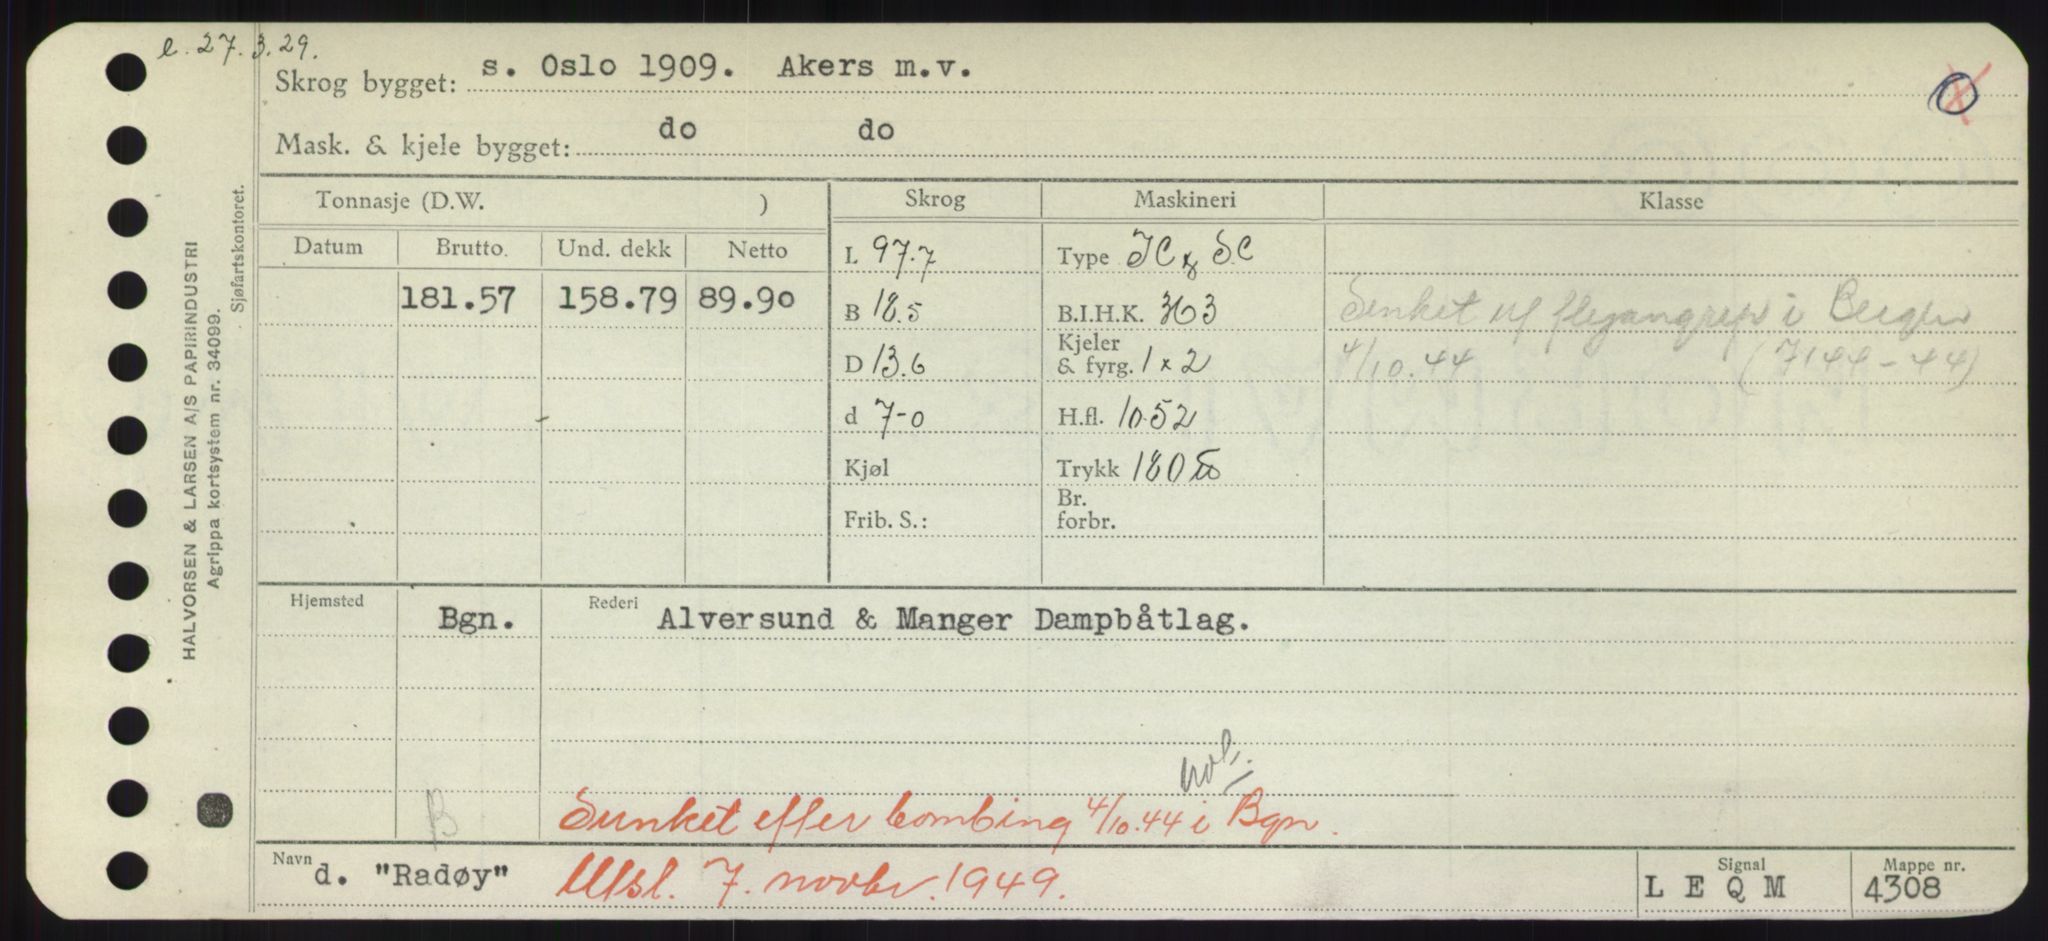 e. 27.3.29.
Skrog bygget: s. Oslo 1909. Akers m.v.
Mask. & kjele bygget: do do
Tonnasje (D.W. ) Skrog Maskineri Klasse
Datum Brutto. Und. dekk Netto
181.57 158.79 89.90
L 97.7
B 18.5
D 13.6
d 7-0
Kjøl
Frib. S.:
Type SC
B.I.H.K. 363
Kjeler
& fyrg. 1 x 2
H.fl. 1052
Trykk 180
Br.
forbr.
Senket v/ flyangrep i Bergen
4/10.44 (7144-44)
Hjemsted Bgn. Rederi Alversund & Manger Dampbåtlag.
B
Sunket efter bombing 4/10.44 i Bgn.
Navn d. "Radøy" Utsl. 7. novbr. 1949.
Signal L E Q M
Mappe nr. 4308
HALVORSEN & LARSEN A/S PAPIRINDUSTRI
Agrippa kortsystem nr. 34099.
Sjøfartskontoret.